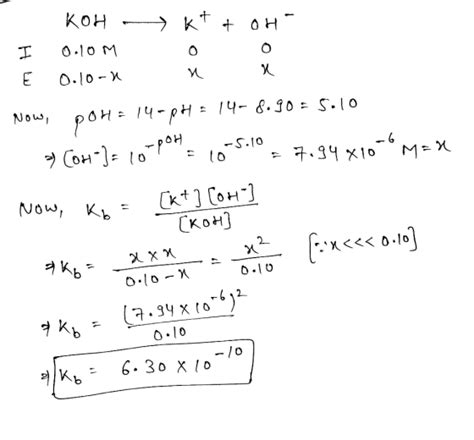 KOH ⟶ K⁺ + OH⁻
I 0.10 M 0 0
E 0.10-x x x
Now, pOH = 14-pH = 14-8.90 = 5.10
⇒ [OH⁻] = 10^-pOH = 10^-5.10 = 7.94 × 10^-6 M = x
Now, K_b = [K⁺][OH⁻] / [KOH]
⇒ K_b = x × x / 0.10-x = x² / 0.10 [∵ x <<< 0.10]
⇒ K_b = (7.94 × 10^-6)² / 0.10
⇒ K_b = 6.30 × 10^-10